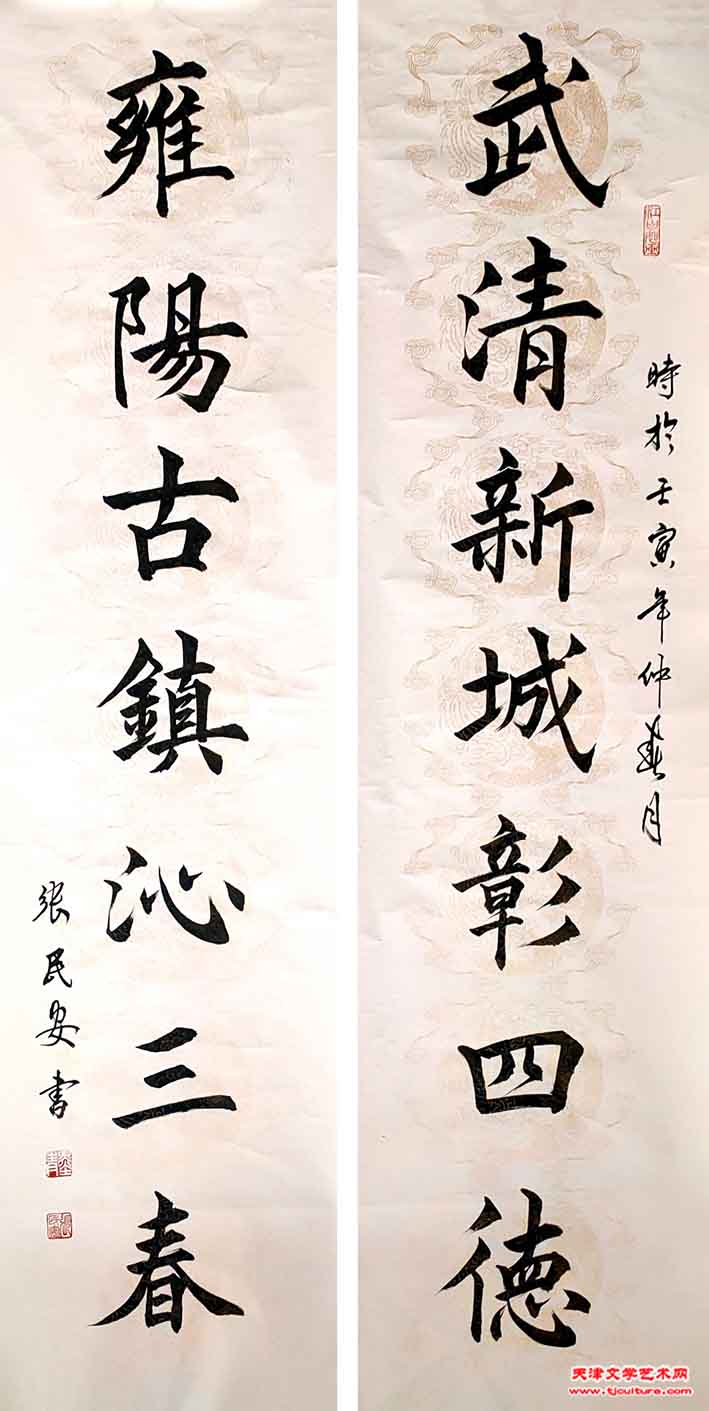 武清新城彰四德
時於壬寅年仲春月
雍陽古鎮沁三春
張民安書
天津文学艺术网
www.tjculture.com